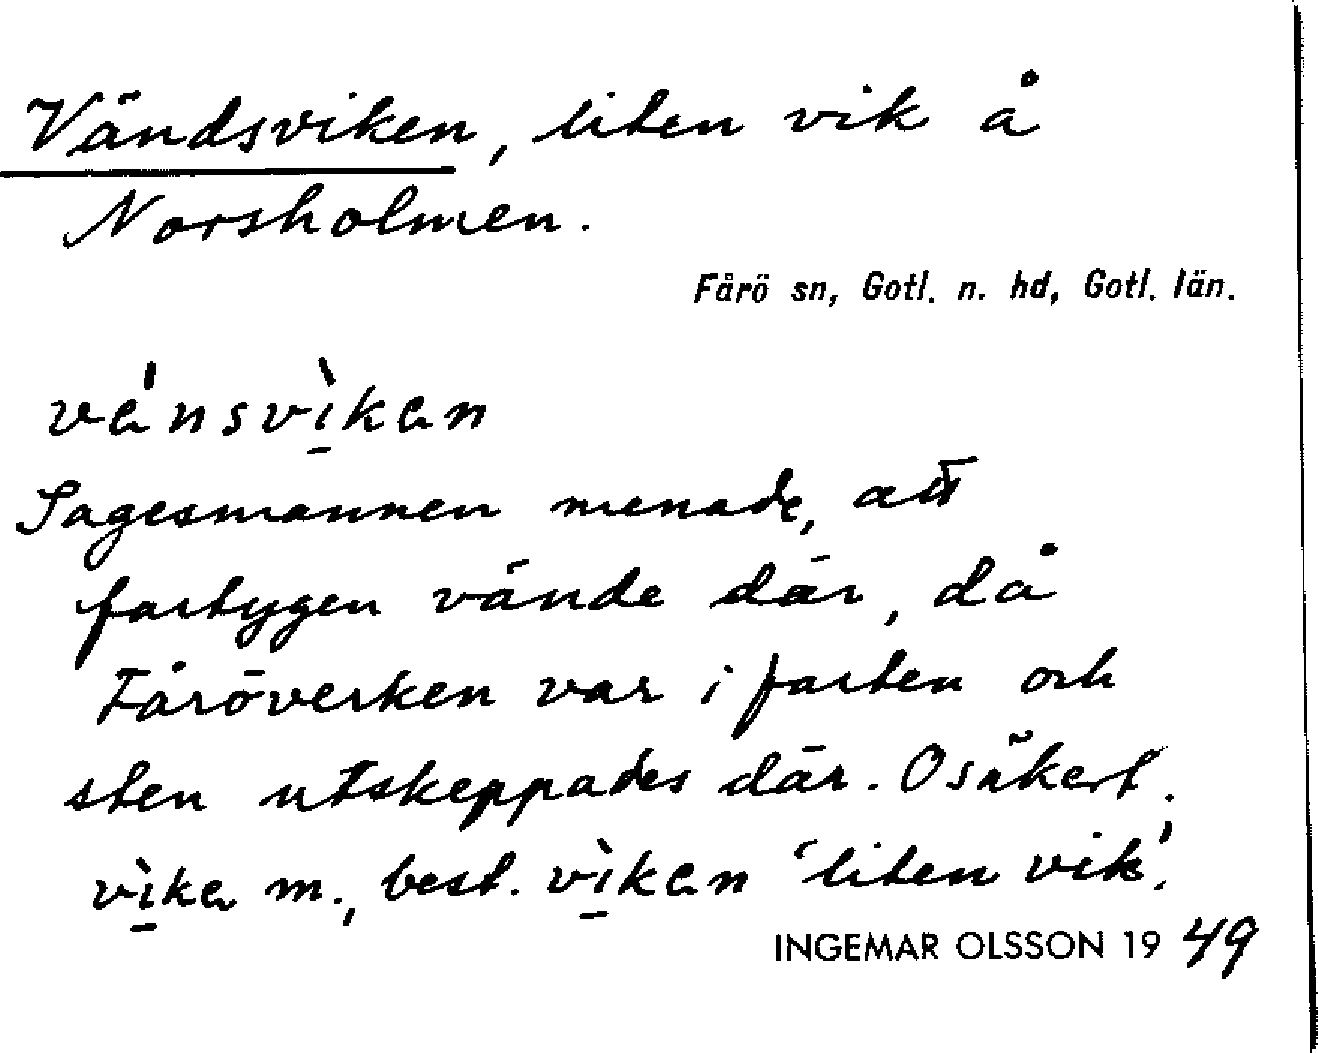 Vändsviken, liten vik å
Norsholmen.
Fårö sn, Gotl. n. hd, Gotl. län.
vánsvì̠kan
Sagesmannen menade, att
fartygen vände där, då
Fåröverken var i farten och
sten utskeppades där. Osäkert.
vì̠ka m., best. vì̠kan 'liten vik'.
INGEMAR OLSSON 1949